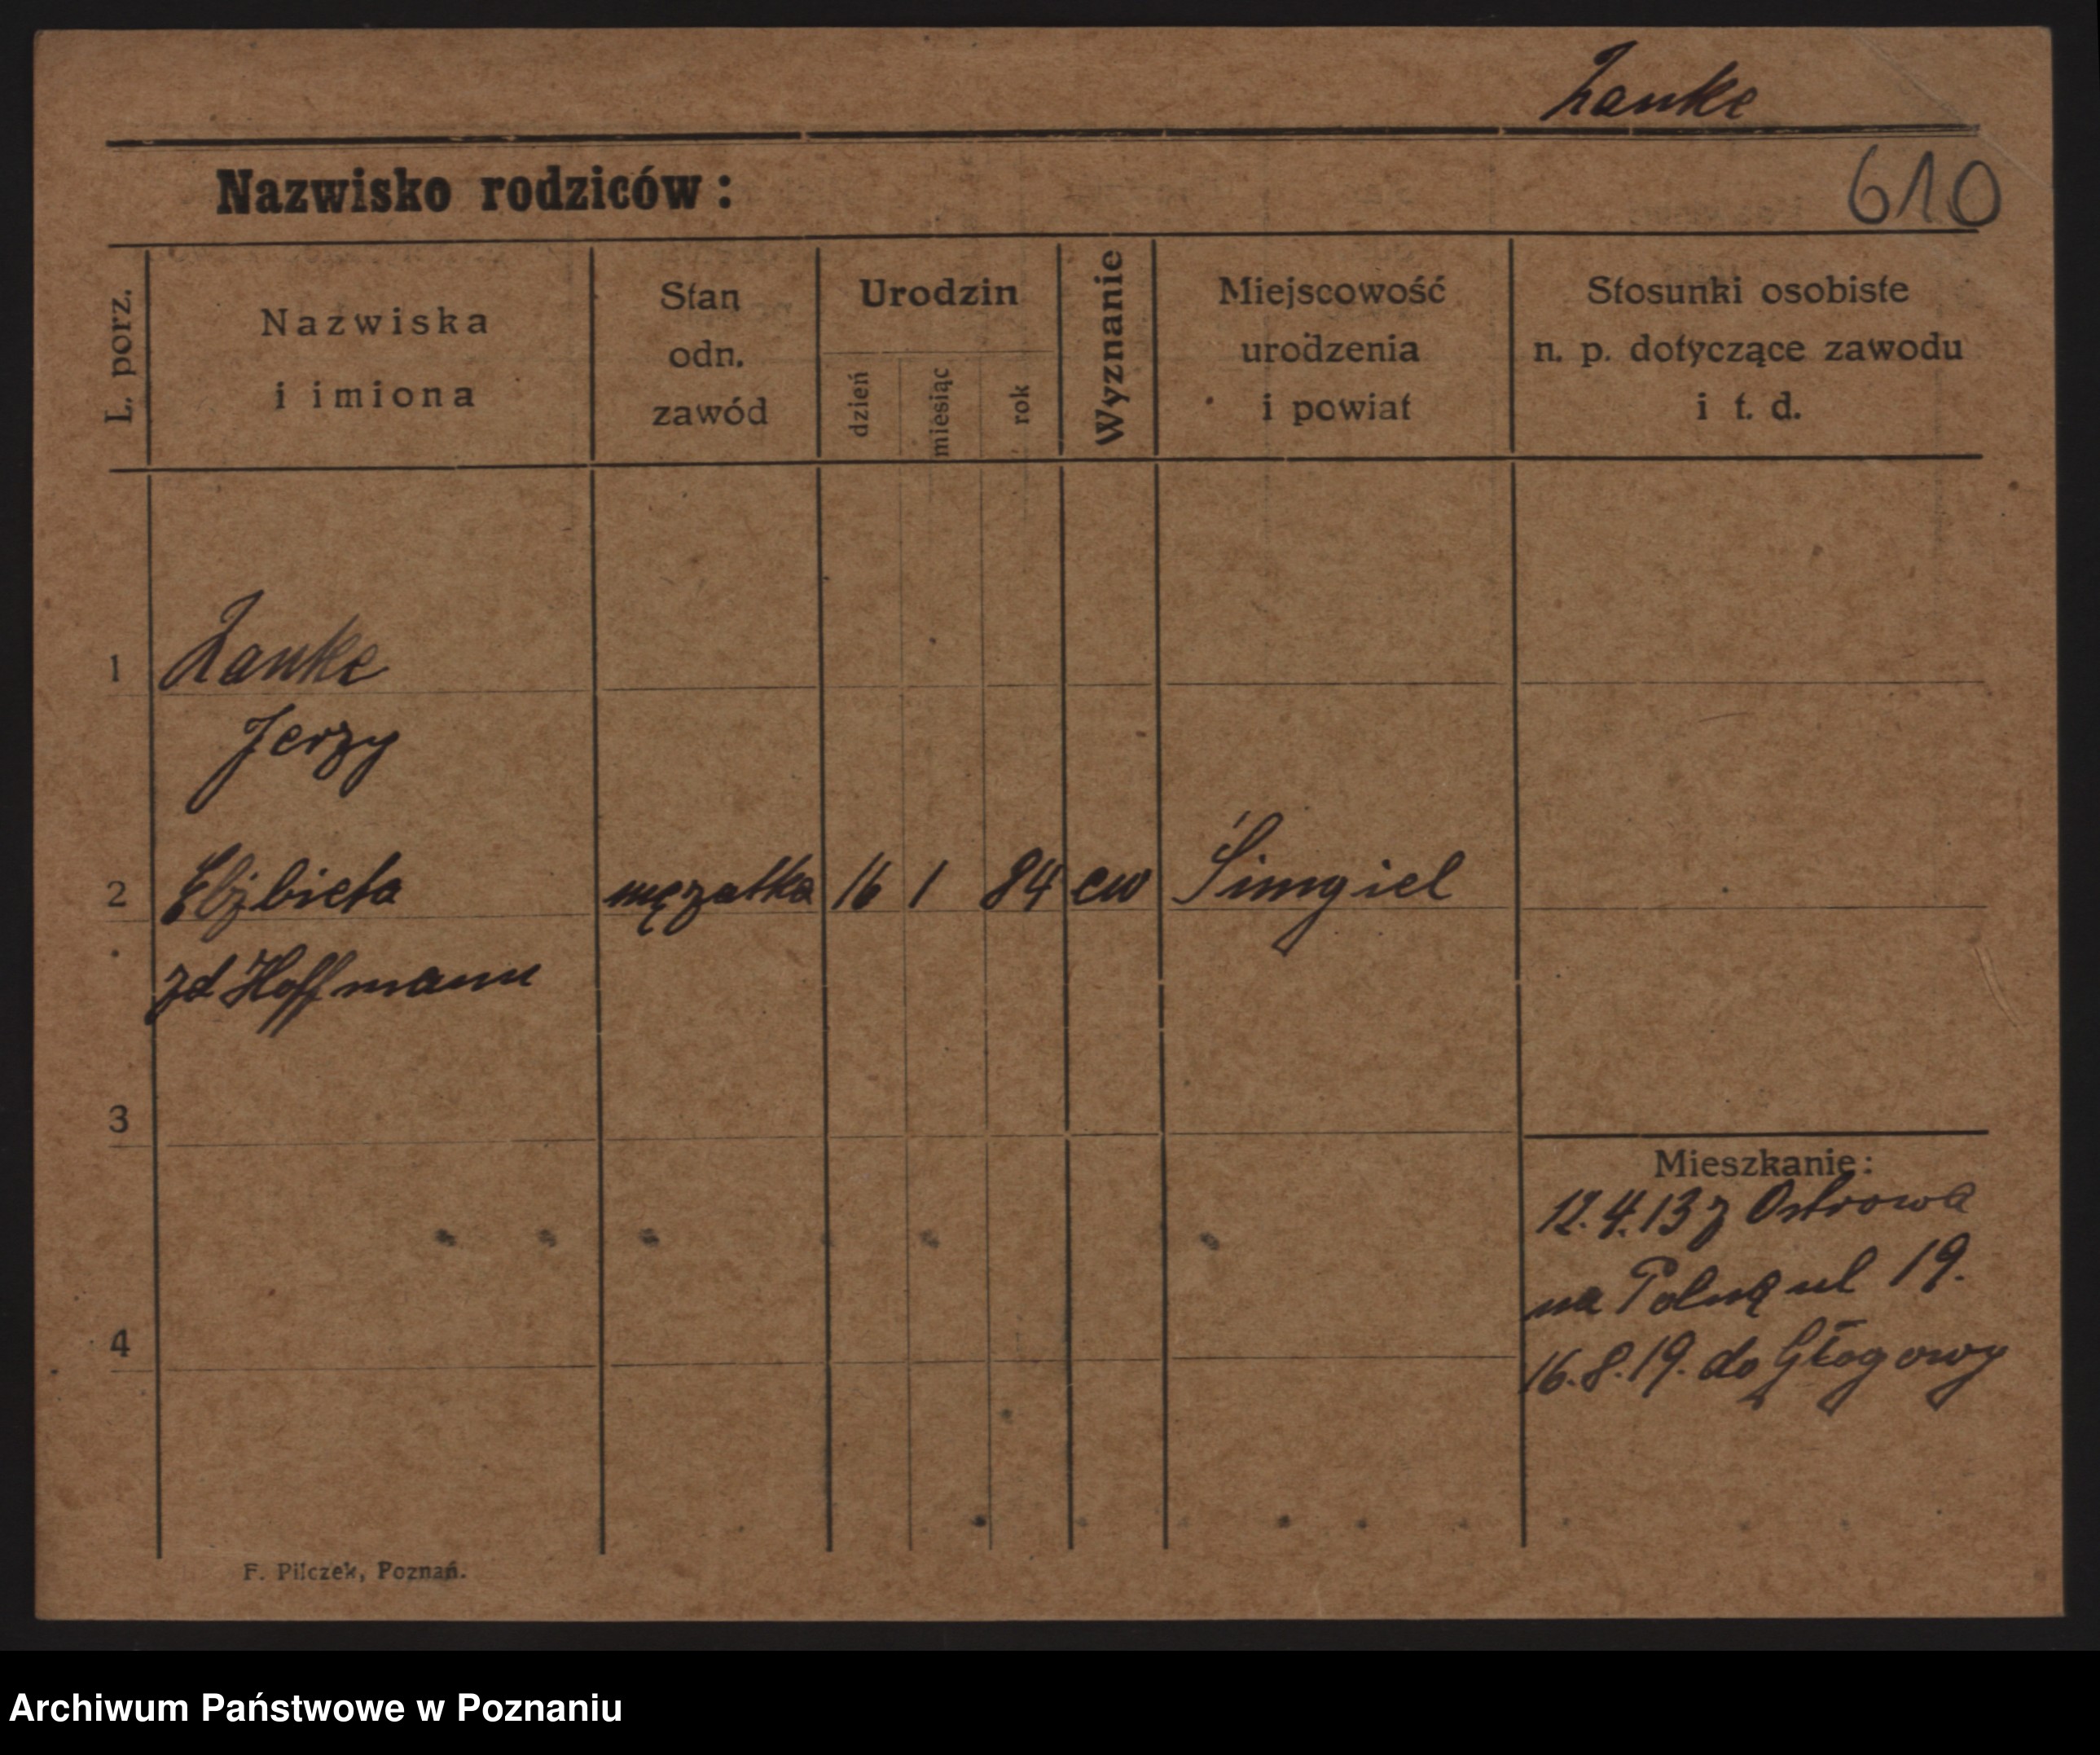 Zanke
Nazwisko rodziców:
610
L. porz.
Nazwiska
i imiona
Stan
odn.
zawód
Urodzin
dzień
miesiąc
rok
Wyznanie
Miejscowość
urodzenia
i powiat
Stosunki osobiste
n. p. dotyczące zawodu
i t. d.
1 Zanke
Jerzy
2 Elżbieta mężatka 16 1 84 ew Śimgiel
zd Hoffmann
3
Mieszkanie:
12.4.13 z Ostrowa
na Polną ul 19.
4
16.8.19. do Głogowy
F. Pilczek, Poznań.
Archiwum Państwowe w Poznaniu